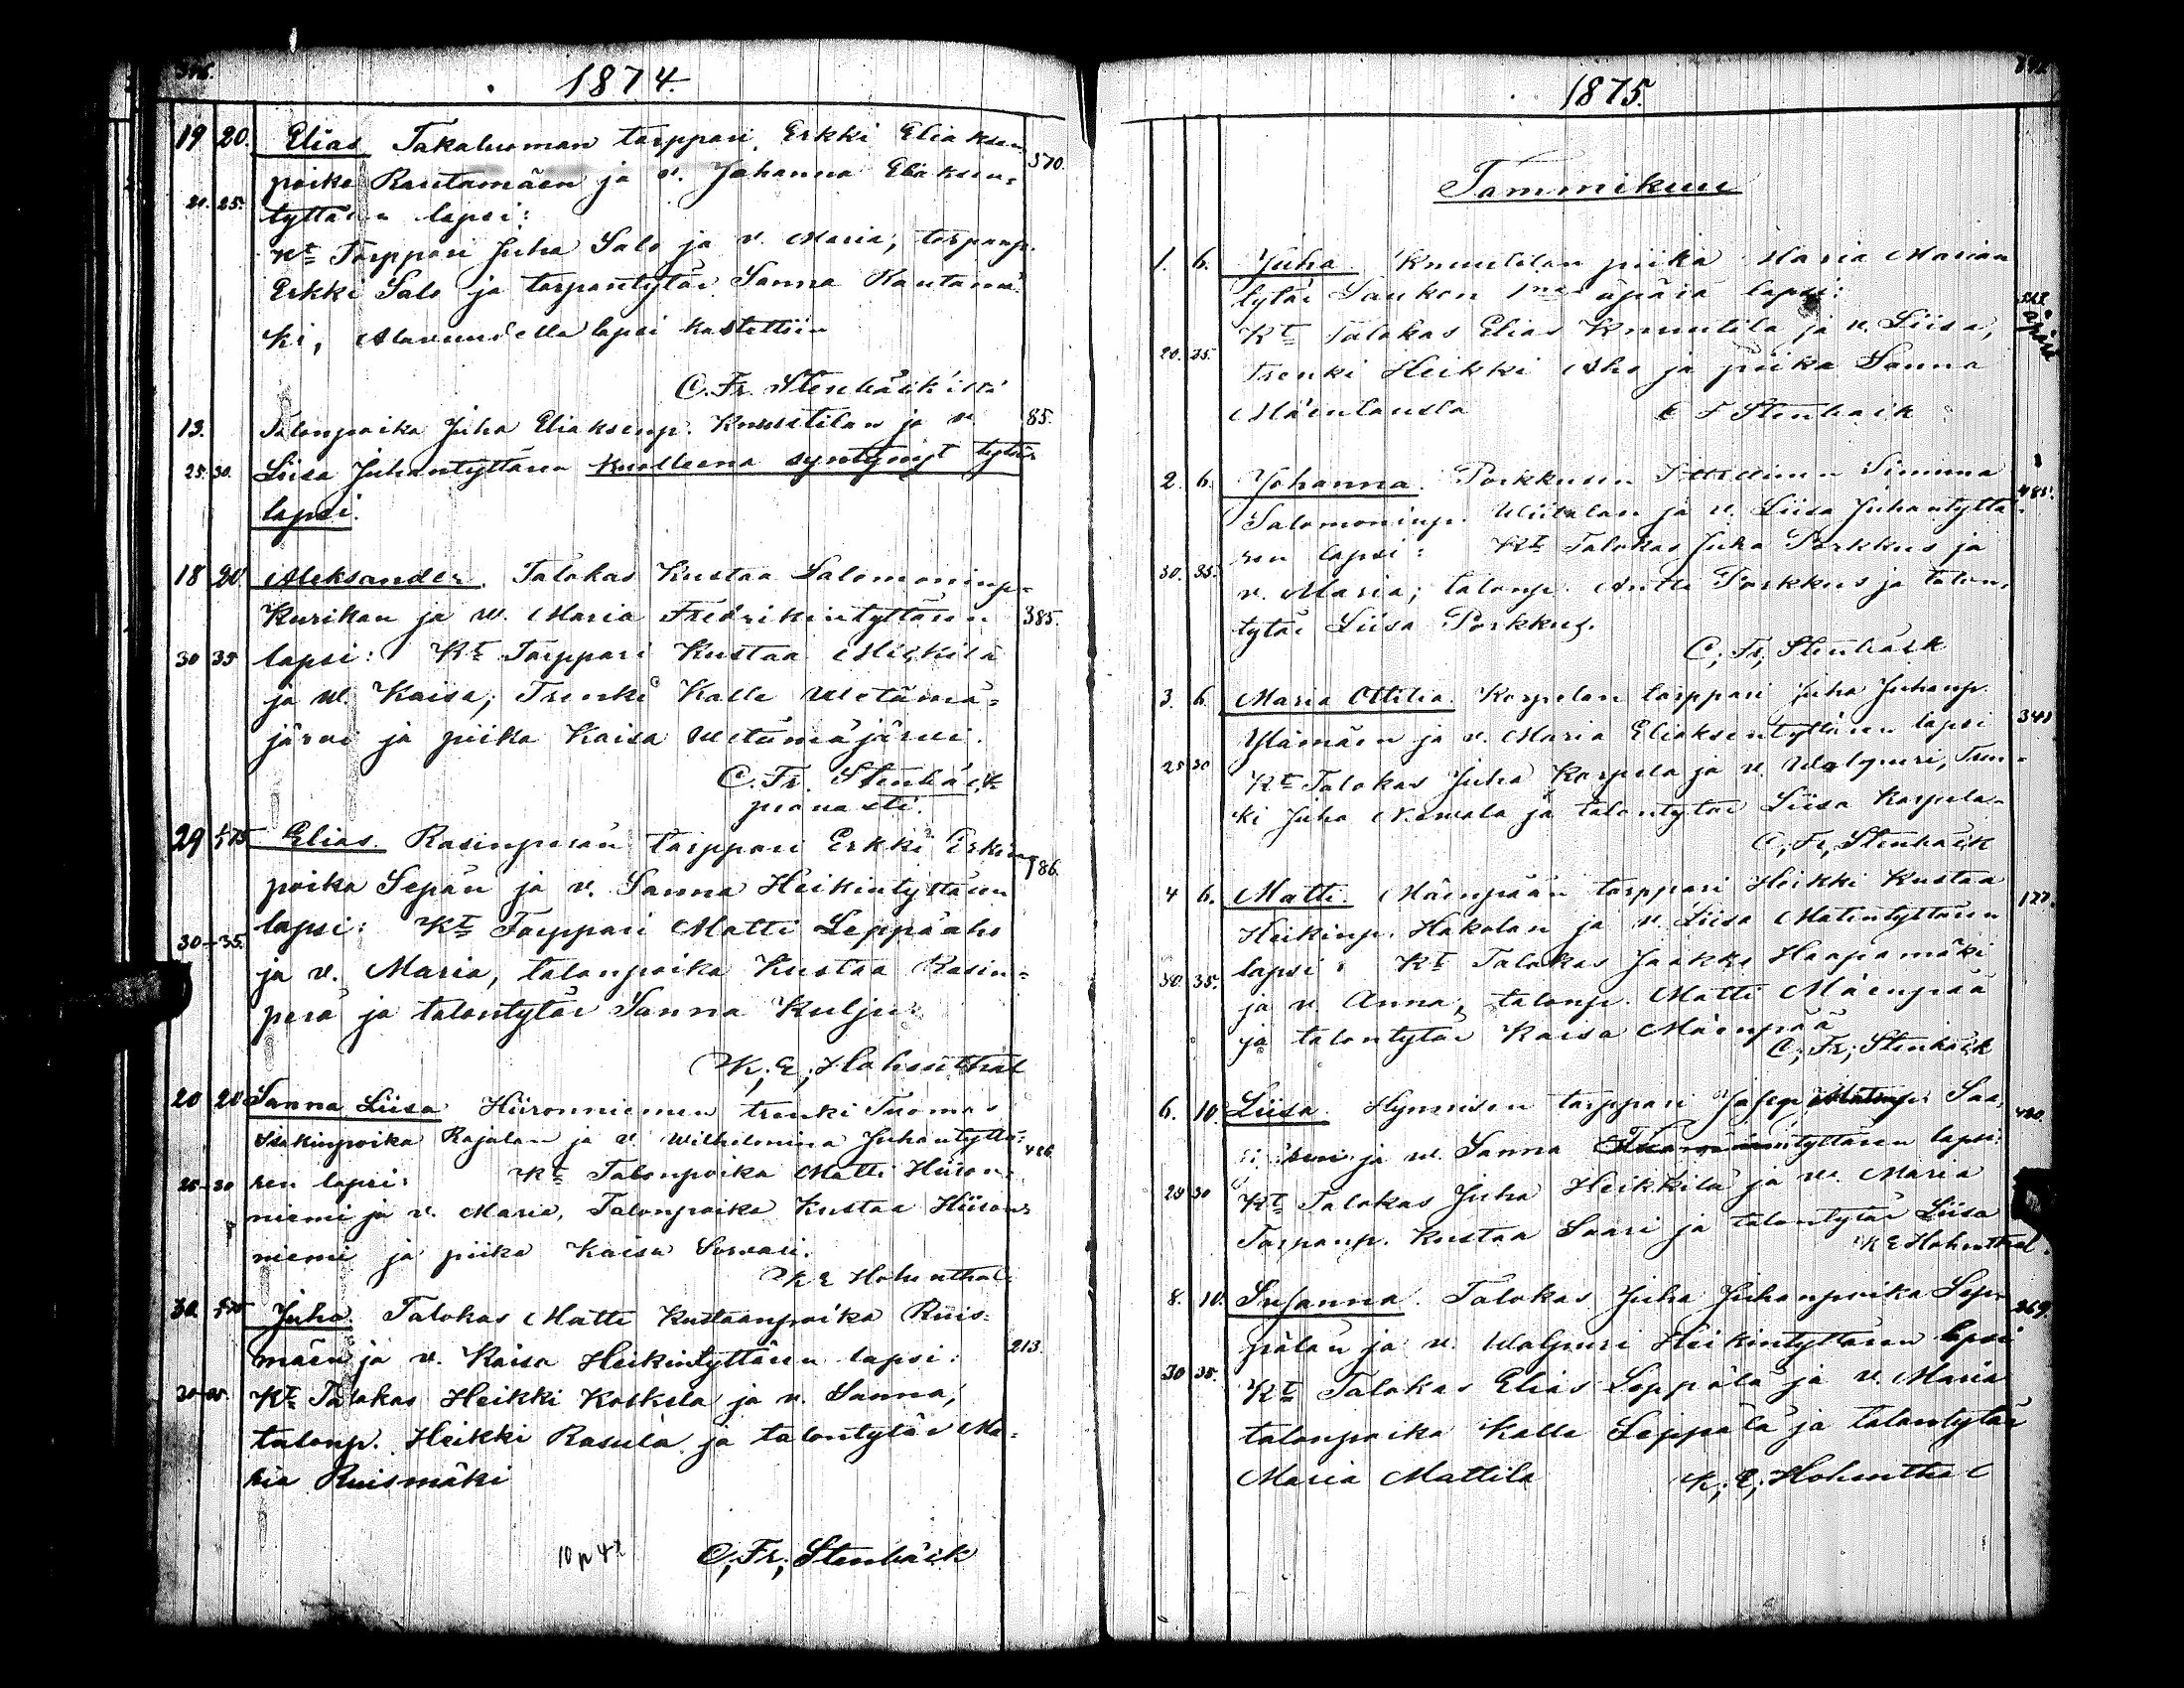 1874.
19 20. Elias. Takaluoman torppari Erkki Eliaksen
poika Rautamäen ja v. Johanna Eliaksen= 370.
21. 25. tyttären lapsi:
Kt Torppari Juha Salo ja v. Maria, torpanp.
Erkki Salo ja torpantytär Sanna Rautamä
ki, Alavuudella lapsi kastettiin
C. Fr. Stenbäck'iltä
13. Talonpoika Juha Eliaksenp. Knuutilan ja v. 85.
25. 30. Liisa Juhantyttären kuolleena syntynyt tytär
lapsi.
18 20 Aleksander. Talokas Kustaa Salomoninp=
Kurikan ja W. Maria Fredrikintyttären 385.
30 35 lapsi: Kt Torppari Kustaa Mikkilä
ja W. Kaisa, Trenki Kalle Wetämä=
järvi ja piika Kaisa Wetämäjärvi.
C. Fr. Stenbäck
29 Elias. Rasinperän torppari Erkki Erkin
poika Sepän ja v. Sanna Heikintyttären 186.
lapsi: Kt Torppari Matti Leppäaho
30-35. ja v. Maria, talonpoika Kustaa Rasin=
perä ja talontytär Sanna Kulju.
K; E; Hohenthal
20 20 Sanna Liisa Hiironniemen trenki Tuomas
Isakinpoika Rajalan ja v. Wilhelmina Juhantyttä= 486.
25-30 ren lapsi: Kt Talonpoika Matti Hiiron=
niemi ja v. Maria, Talonpoika Kustaa Hiiron=
niemi ja piika Kaisa Sorvari.
K E Hohenthal
30. Juha. Talokas Matti Kustaanpoika Ruis=
mäen ja v. Kaisa Heikintyttären lapsi: 213.
30-35. Kt Talokas Heikki Koskela ja v. Sanna,
talonp. Heikki Rasila ja talontytär Ma=
ria Ruismäki
C; Fr; Stenbäck
1875.
Tammikuu
1. 6. Juha Knuutilan piika Maria Marian
tytär Saukon 1nen äpärä lapsi:
Kt Talokas Elias Knuutila ja v. Liisa,
20. 25. trenki Heikki Aho ja piika Sanna
Mäenlausla C F Stenbäck
2. 6. Johanna. Porkkusen Simuna
Salomoninp. Wiitalan ja v. Liisa Juhantyttä 485.
ren lapsi: Kt Talokas Juha Porkkus ja
30. 35. v. Maria; talonp. Antti Porkkus ja talon
tytär Liisa Porkkus.
C; Fr; Stenbäck
3. 6. Maria Ottilia. Korpelan torppari Juha Juhanp.
Ylämäen ja v. Maria Eliaksentyttären lapsi
25 30 Kt Talokas Juha Korpela ja v. Walpuri, Tren=
ki Juha Newala ja talontytär Liisa Korpela
C; Fr; Stenbäck
4 6. Matti. Mäenpään torppari Heikki Kustaa
Heikinp. Hakolan ja v. Liisa Matintyttären 177.
30. 35. lapsi: Kt Talokas Jaakko Haapamäki
ja v. Anna, talonp. Matti Mäenpää
ja talontytär Kaisa Mäenpää
C; Fr; Stenbäck
6. 10. Liisa. Hynnisen torppari Josep Matinp. Saa=
ja w. Sanna tyttären lapsi:
25 30 Kt Talokas Juha Heikkilä ja w. Maria
Torpanp. Kustaa Saari ja talontytär Liisa
K E Hohenthal.
8. 10. Susanna. Talokas Juha Juhanpoika Lep= 269.
pälän ja v. Walpuri Heikintyttären lapsi
30 35. Kt Talokas Elias Leppälä ja v. Maria
talonpoika Kalle Leppälä ja talontytär
Maria Mattila K; E; Hohenthal